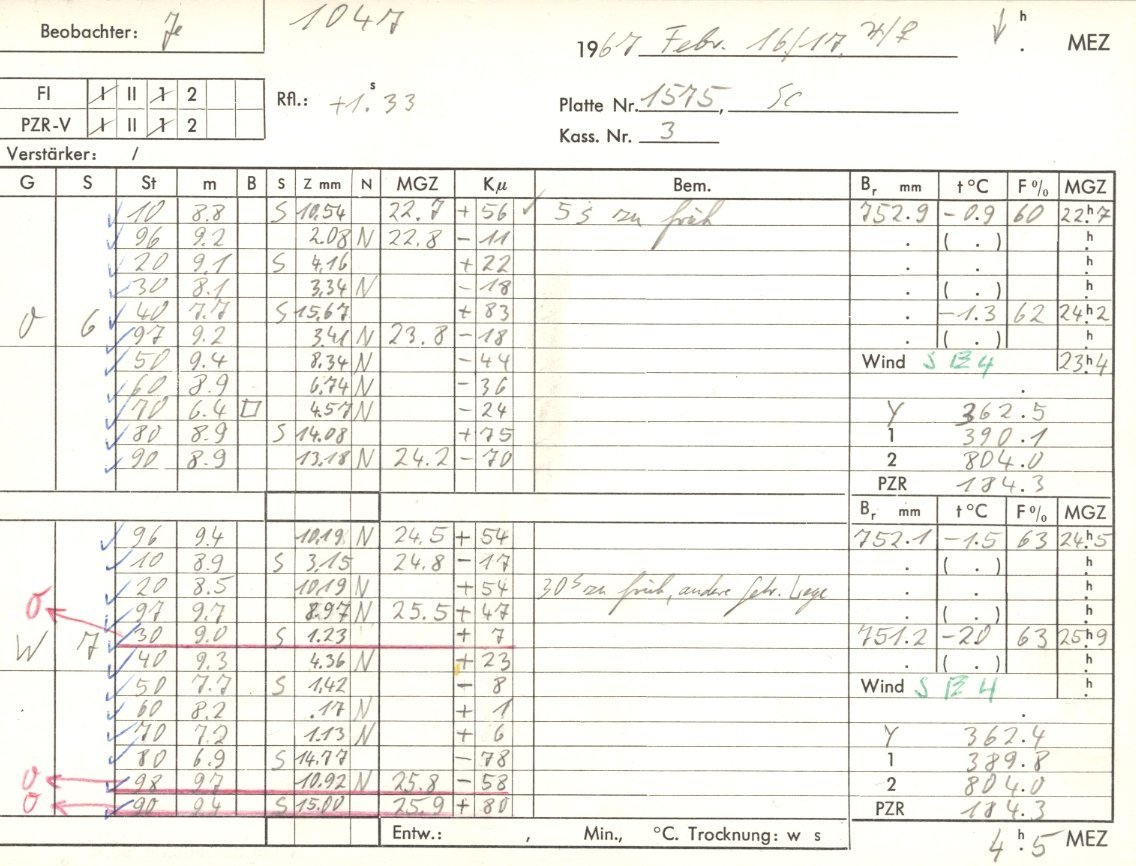 Beobachter: Je 1047 1967 Febr. 16/17 ♃/♀ h . MEZ
FI I II 1 2 Rfl.: +1.s33 Platte Nr. 1575, Sc
PZR-V I II 1 2 Kass. Nr. 3
Verstärker: /
G S St m B S Z mm N MGZ Kμ Bem. Br mm t °C F % MGZ
10 8.8 S 10.54 22.7 + 56 5s zu früh 752.9 -0.9 60 22.h7
96 9.2 2.08 N 22.8 - 11 . ( . ) h
20 9.1 S 4.16 + 22 . . h
30 8.1 3.34 N - 18 . ( . ) h
O 6 40 7.7 S 15.67 + 83 . -1.3 62 24.h2
97 9.2 3.41 N 23.8 - 18 . ( . ) h
50 9.4 8.34 N - 44 Wind S B 4 23.h4
60 8.9 6.74 N - 36 .
70 6.4 □ 4.57 N - 24 Y 362.5
80 8.9 S 14.08 + 75 1 390.1
90 8.9 13.18 N 24.2 - 70 2 804.0
PZR 184.3
Br mm t °C F % MGZ
96 9.4 10.19 N 24.5 + 54 752.1 -1.5 63 24.h5
10 8.9 S 3.15 24.8 - 17 . ( . ) h
20 8.5 10.19 N + 54 30s zu früh, andere Lage . . h
97 9.7 8.97 N 25.5 + 47 . ( . ) h
O W 7 30 9.0 S 1.23 + 7 751.2 -2.0 63 25.h9
40 9.3 4.36 N + 23 . ( . ) h
50 7.7 S 1.42 - 8 Wind S B 4 h
60 8.2 .17 N + 1 .
70 7.2 1.13 N + 6 Y 362.4
80 6.9 S 14.77 - 78 1 389.8
O 98 9.7 10.92 N 25.8 - 58 2 804.0
O 90 9.4 S 15.00 25.9 + 80 PZR 184.3
Entw.: , Min., °C. Trocknung: w s 4.h5 MEZ